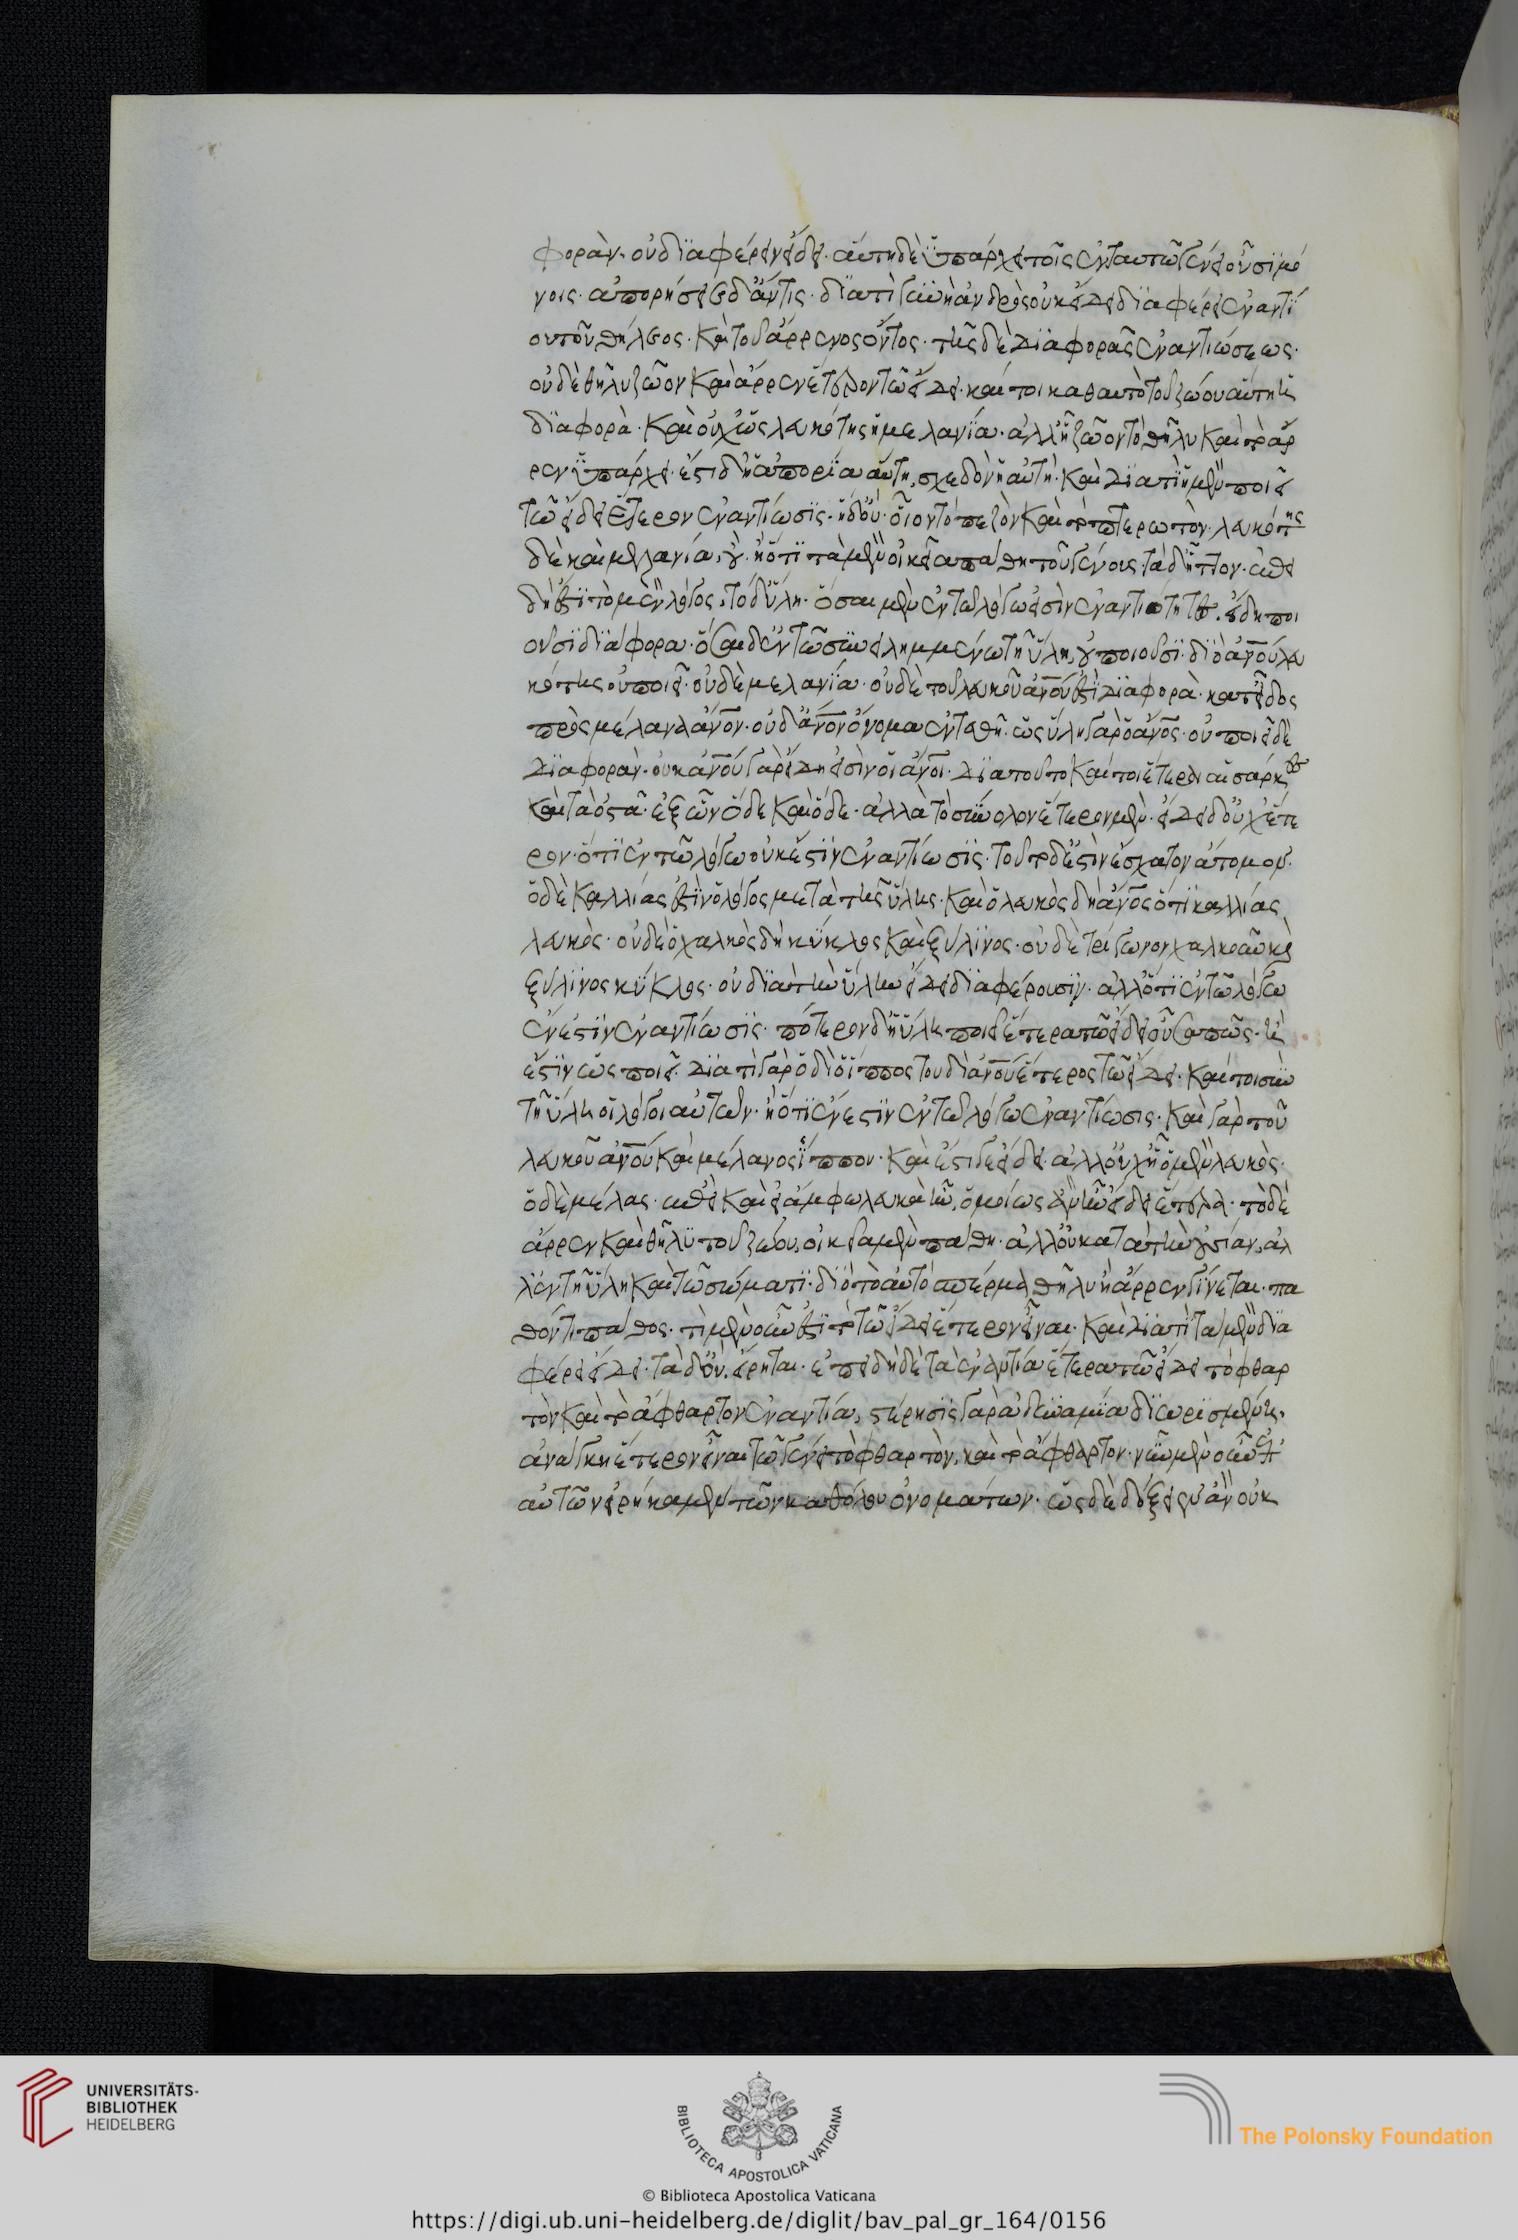 φορὰν. οὐ διαφέρειν εἴδει. αὕτη δὲ ὑπάρχει τοῖς ἐν ταυτῶ γένει οὖσι μό
νοις. ἀπορήσειε δ' ἄν τις. διατί γυνὴ ἀνδρὸς οὐκ εἴδει διαφέρει ἐναντί
ου τοῦ θήλεος. καὶ τοῦ ἄρρενος ὄντος. τῆς δὲ διαφορᾶς ἐναντιώσεως.
οὐδὲ θῆλυ ζῶον καὶ ἄρρεν ἕτερον τῶ εἴδει. καίτοι καθαυτὸ τοῦ ζώου αὕτη ἡ
διαφορὰ. καὶ οὐχ ὡς λευκότης ἢ μελανία. ἀλλ' ἧ ζῶον τὸ θῆλυ καὶ τὸ ἄρ
ρεν ὑπάρχει. ἔστι δ' ἡ ἀπορία αὕτη, σχεδὸν ἡ αὐτὴ. καὶ διατί ἡ μὲν ποιεῖ
τῶ εἴδει ἕτερον ἐναντίωσις. ἡ δ' οὔ. οἷον τὸ πεζὸν καὶ τὸ πτερωτὸν. λευκότης
δὲ καὶ μελανία, οὔ. ἢ ὅτι τὰ μὲν οἰκεῖα πάθη τοῦ γένους, τὰ δ' ἧττον. ἐπεὶ
δή ἐστι τὸ μὲν λόγος, τὸ δ' ὕλη. ὅσαι μὲν ἐν τῶ λόγω εἰσὶν ἐναντιότητες. εἴδη ποι
οῦσι διάφορα. ὅσαι δ' ἐν τῶ συνειλημμένω τῆ ὕλη, οὐ ποιοῦσι. διὸ ἀνου λευ
κότης οὐ ποιεῖ. οὐδὲ μελανία. οὐδὲ τοῦ λευκοῦ ἀνου ἐστὶ διαφορὰ. κατ' εἶδος
πρὸς μέλανα ἀνον. οὐδ' ἂν ὂν ὄνομα ἓν τεθῆ. ὡς ὕλη γὰρ ὁ ἀνος. οὐ ποιεῖ δὲ
διαφορὰν. οὐκ ἀνου γὰρ εἴδη εἰσὶν οἱ ἀνοι. διὰ τοῦτο καίτοι ἕτεραι αἱ σάρκες
καὶ τὰ ὀστᾶ. ἐξ ὧν ὅδε καὶ ὅδε. ἀλλὰ τὸ σύνολον ἕτερον μὲν. εἴδει δ' οὐχ ἕτε
ρον. ὅτι ἐν τῶ λόγω οὐκ ἔστιν ἐναντίωσις. τοῦτο δ' ἐστὶν ἔσχατον ἄτομον.
ὁ δὲ καλλίας ἐστὶν ὁ λόγος μετὰ τῆς ὕλης. καὶ ὁ λευκὸς δὴ ἀνος ὅτι καλλίας
λευκὸς. οὐδὲ ὁ χαλκὸς δὴ κύκλος καὶ ξύλινος. οὐδὲ τρίγωνον χαλκοῦν καὶ
ξύλινος κύκλος. οὐ διὰ τὴν ὕλην εἴδει διαφέρουσιν. ἀλλ' ὅτι ἐν τῶ λόγω
ἔνεστιν ἐναντίωσις. πότερον δ' ἡ ὕλη ποιεῖ ἕτερα τῶ εἴδει οὖσά πως. ἢ
ἔστιν ὡς ποιεῖ. διατί γὰρ ὁδὶ ὁ ἵππος τουδὶ ἀνου ἕτερος τῶ εἴδει. καίτοι σὺν
τῆ ὕλη οἱ λόγοι αὐτῶν. ἢ ὅτι ἔνεστιν ἐν τῶ λόγω ἐναντίωσις. καὶ γὰρ τοῦ
λευκοῦ ἀνου καὶ μέλανος ἵππου. καὶ ἔστι γε εἴδει. ἀλλ' οὐχ ἧ ὁ μὲν λευκὸς.
ὁ δὲ μέλας. ἐπεὶ καὶ εἰ ἄμφω λευκὰ ἦν, ὁμοίως ἂν ἦν εἴδει ἕτερα. τὸ δὲ
ἄρρεν καὶ θῆλυ τοῦ ζώου, οἰκεῖα μὲν πάθη. ἀλλ' οὐ κατὰ τὴν οὐσίαν, ἀλ
λ' ἐν τῆ ὕλη καὶ τῶ σώματι. διὸ τὸ αὐτὸ σπέρμα θῆλυ ἢ ἄρρεν γίνεται. πα
θόν τι πάθος. τί μὲν οὖν ἐστι τὸ τῶ εἴδει ἕτερον εἶναι. καὶ διατί τὰ μὲν δια
φέρει εἴδει. τὰ δ' οὔ. εἴρηται. ἐπειδὴ δὲ τὰ ἐναντία ἕτερα τῶ εἴδει τὸ φθαρ
τὸν καὶ τὸ ἄφθαρτον ἐναντία, στέρησις γὰρ ἀδυναμία διωρισμένη.
ἀνάγκη ἕτερον εἶναι τῶ γένει τὸ φθαρτὸν, καὶ τὸ ἄφθαρτον. νῦν μὲν οὖν ἐπ'
αὐτῶν εἰρήκαμεν τῶν καθόλου ὀνομάτων. ὡς δὲ δόξειεν ἂν οὐκ
UNIVERSITÄTS-
BIBLIOTHEK
HEIDELBERG
BIBLIOTECA APOSTOLICA VATICANA
The Polonsky Foundation
© Biblioteca Apostolica Vaticana
https://digi.ub.uni-heidelberg.de/diglit/bav_pal_gr_164/0156